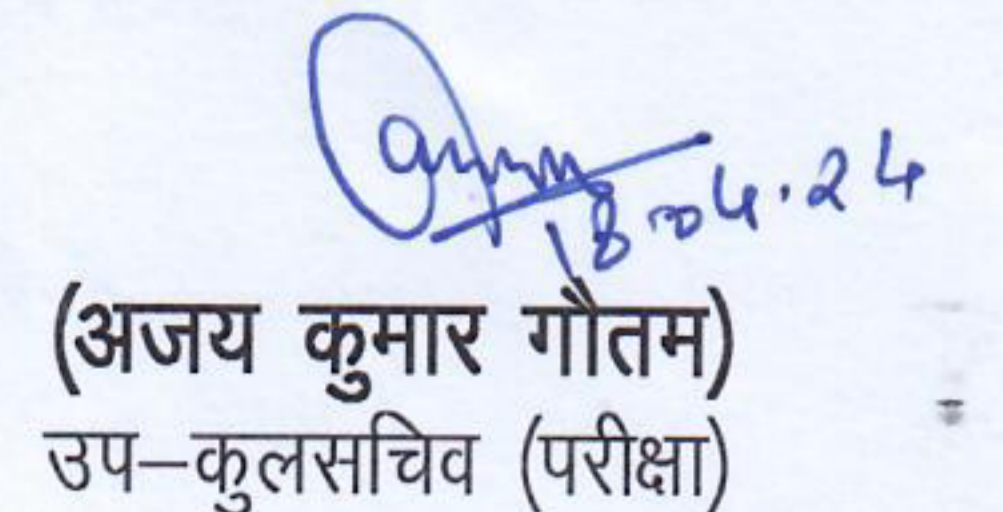 18.04.24
(अजय कुमार गौतम)
उप–कुलसचिव (परीक्षा)